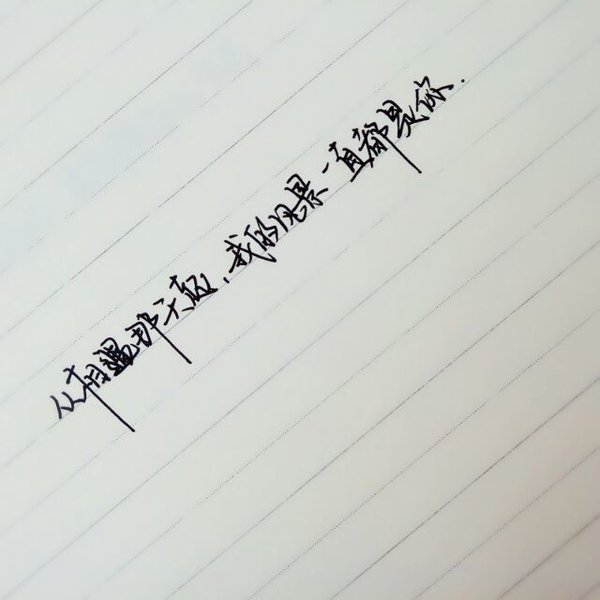 从相遇那天起,我的风景一直都是你.